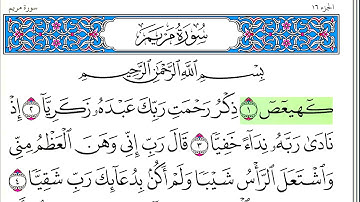 الجزء ١٦
سورة مريم
سُورَةُ مَرْيَمَ
بِسْمِ ٱللَّهِ ٱلرَّحْمَٰنِ ٱلرَّحِيمِ
كٓهيعٓصٓ ١ ذِكْرُ رَحْمَتِ رَبِّكَ عَبْدَهُۥ زَكَرِيَّآ ٢ إِذْ
نَادَىٰ رَبَّهُۥ نِدَآءً خَفِيًّا ٣ قَالَ رَبِّ إِنِّى وَهَنَ ٱلْعَظْمُ مِنِّى
وَٱشْتَعَلَ ٱلرَّأْسُ شَيْبًا وَلَمْ أَكُنۢ بِدُعَآئِكَ رَبِّ شَقِيًّا ٤